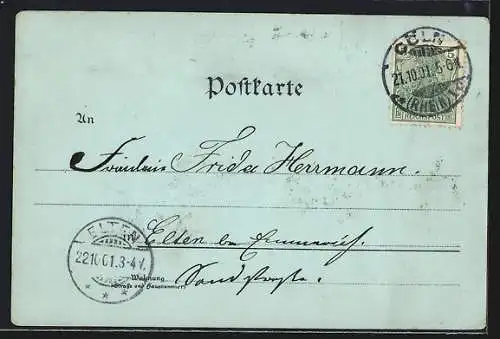 CÖLN
21.10.01. 5-6
(RHEIN)
REICHSPOST
Postkarte
An
Fräulein Frida Herrmann.
ELTEN
22 10 01. 3-4 N.
* * *
in
Elten bei Emmerich.
Wohnung
(Straße und Hausnummer)